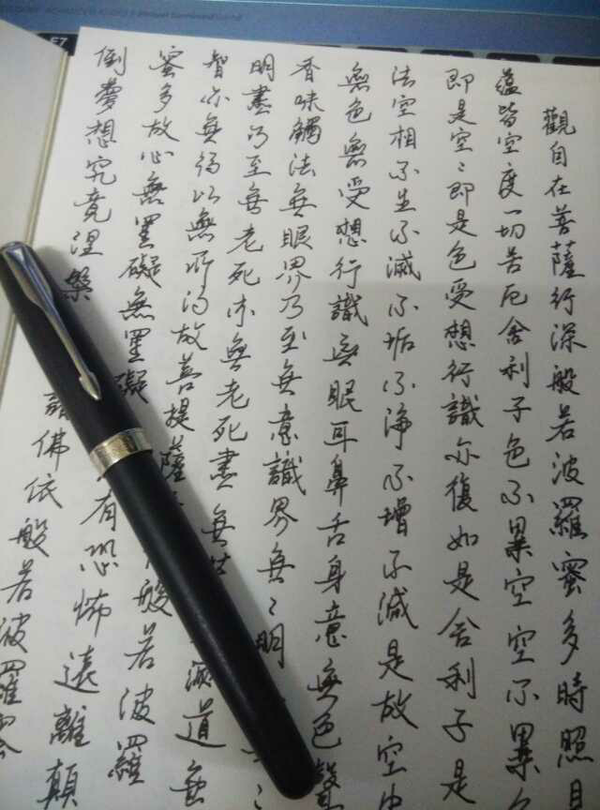 觀自在菩薩行深般若波羅蜜多時照
蘊皆空度一切苦厄舍利子色不異空空不異
即是空〻即是色受想行識亦復如是舍利子是
法空相不生不滅不垢不淨不增不減是故空中
無色無受想行識無眼耳鼻舌身意無色聲
香味觸法無眼界乃至無意識界無〻明
明盡乃至無老死亦無老死盡無苦滅道無
智亦無得以無所得故菩提薩般若波羅
蜜多故心無罣礙無罣礙有恐怖遠離顛
倒夢想究竟涅槃諸佛依般若波羅蜜